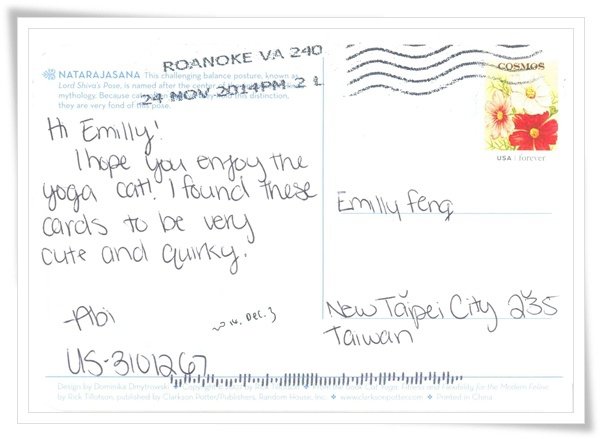 ROANOKE VA 240
24 NOV 2014 PM 2 L
NATARAJASANA This challenging balance posture, known as
Lord Shiva's Pose, is named after the center
mythology. Because cat this distinction,
they are very fond of this pose.
COSMOS
USA forever
Hi Emilly!
I hope you enjoy the
yoga cat! I found these
cards to be very
cute and quirky.
-Abi
US-3101267
2014. Dec. 3
Emilly Feng
New Taipei City 235
Taiwan
Design by Dominika Dmytrowski Fitness and Flexibility for the Modern Feline
by Rick Tillotson, published by Clarkson Potter/Publishers, Random House, Inc. www.clarksonpotter.com Printed in China